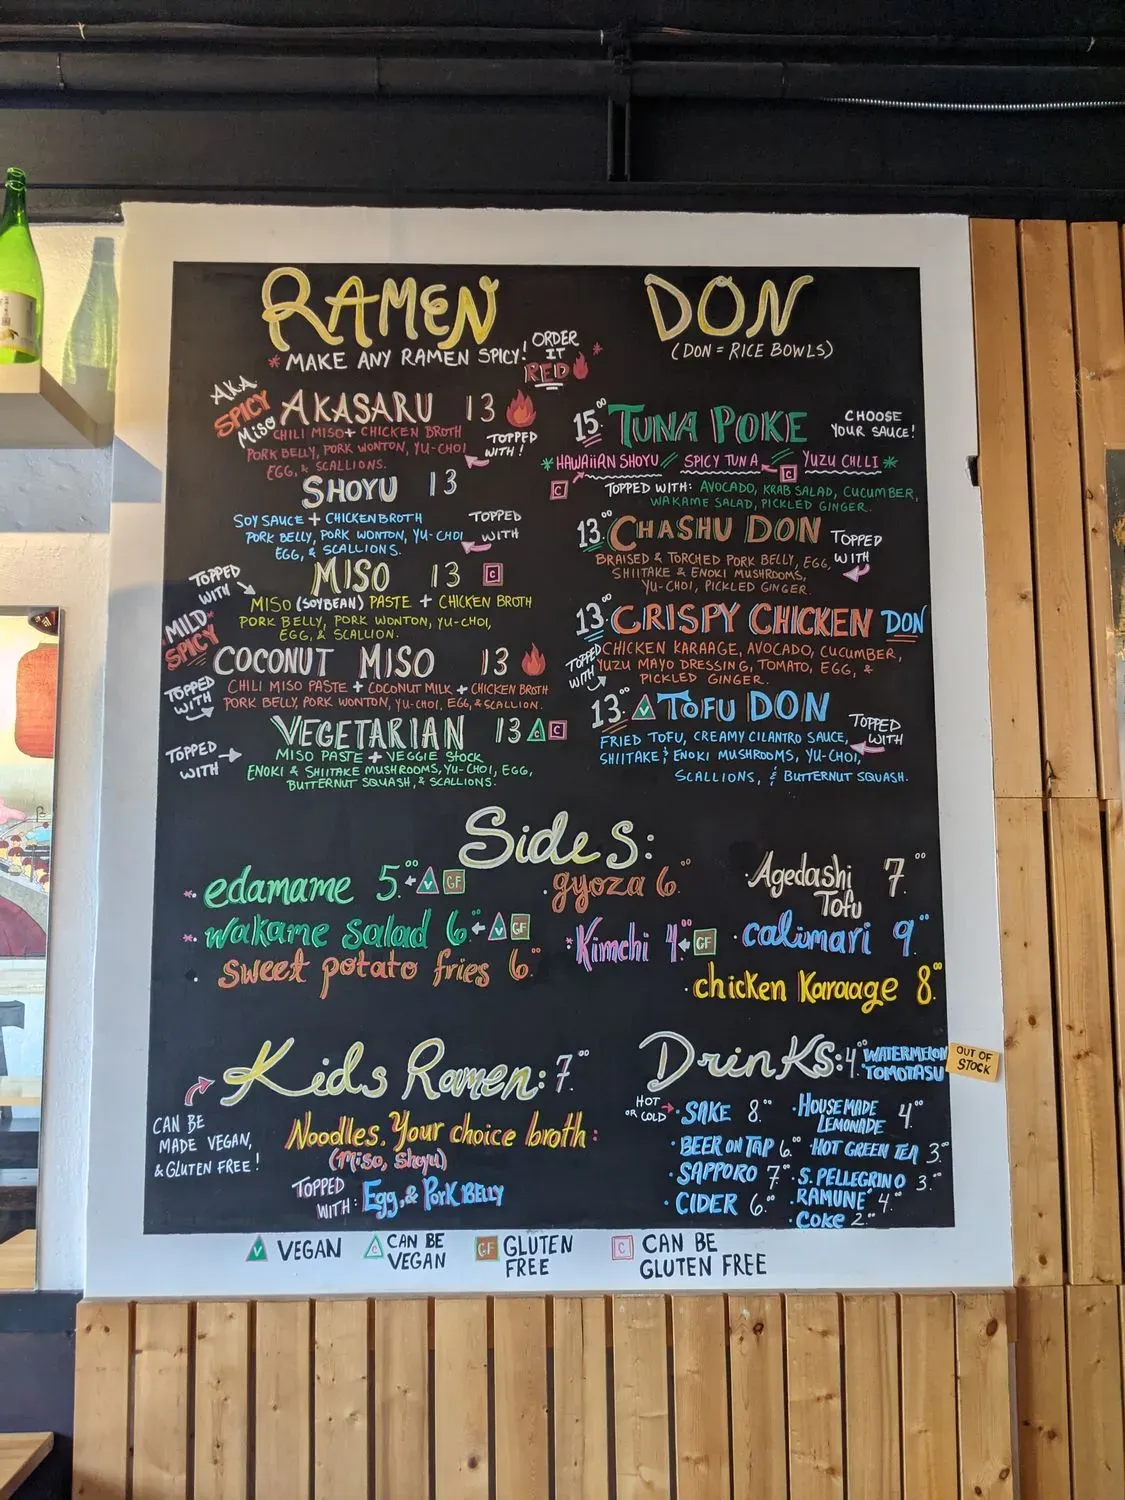 RAMEN
*MAKE ANY RAMEN SPICY! ORDER IT RED *
AKA SPICY MISO
AKASARU 13
CHILI MISO + CHICKEN BROTH
PORK BELLY, PORK WONTON, YU-CHOI
EGG, & SCALLIONS.
TOPPED WITH!
SHOYU 13
SOY SAUCE + CHICKEN BROTH
PORK BELLY, PORK WONTON, YU-CHOI
EGG, & SCALLIONS.
TOPPED WITH
MISO 13 C
TOPPED WITH
MISO (SOYBEAN) PASTE + CHICKEN BROTH
PORK BELLY, PORK WONTON, YU-CHOI,
EGG, & SCALLION.
MILD SPICY
COCONUT MISO 13
TOPPED WITH
CHILI MISO PASTE + COCONUT MILK + CHICKEN BROTH
PORK BELLY, PORK WONTON, YU-CHOI, EGG, & SCALLION.
VEGETARIAN 13 C C
TOPPED WITH
MISO PASTE + VEGGIE STOCK
ENOKI & SHIITAKE MUSHROOMS, YU-CHOI, EGG,
BUTTERNUT SQUASH, & SCALLIONS.
DON
(DON = RICE BOWLS)
15.00 TUNA POKE
CHOOSE
YOUR SAUCE!
*HAWAIIAN SHOYU // SPICY TUNA // YUZU CHILI *
C C
TOPPED WITH: AVOCADO, KRAB SALAD, CUCUMBER,
WAKAME SALAD, PICKLED GINGER.
13.00 CHASHU DON
TOPPED WITH
BRAISED & TORCHED PORK BELLY, EGG,
SHIITAKE & ENOKI MUSHROOMS,
YU-CHOI, PICKLED GINGER.
13.00 CRISPY CHICKEN DON
TOPPED WITH
CHICKEN KARAAGE, AVOCADO, CUCUMBER,
YUZU MAYO DRESSING, TOMATO, EGG, &
PICKLED GINGER.
13.00 V TOFU DON
TOPPED WITH
FRIED TOFU, CREAMY CILANTRO SAUCE,
SHIITAKE & ENOKI MUSHROOMS, YU-CHOI,
SCALLIONS, & BUTTERNUT SQUASH.
Sides:
*· edamame 5.00 V GF
· gyoza 6.00
· Agedashi Tofu 7.00
*· wakame salad 6.00 V GF
*Kimchi 4.00 GF
· calimari 9.00
· sweet potato fries 6.00
· chicken Karaage 8.00
Kids Ramen: 7.00
CAN BE
MADE VEGAN,
& GLUTEN FREE!
Noodles. Your choice broth:
(Miso, Shoyu)
TOPPED WITH: Egg, & PORK BELLY
Drinks: 4.00 WATERMELON
TOMOTASU
OUT OF
STOCK
HOT OR COLD
· SAKE 8.00
· BEER ON TAP 6.00
· SAPPORO 7.00
· CIDER 6.00
· HOUSEMADE LEMONADE 4.00
· HOT GREEN TEA 3.00
· S. PELLEGRINO 3.00
· RAMUNE 4.00
· COKE 2.00
V VEGAN
C CAN BE VEGAN
GF GLUTEN FREE
C CAN BE GLUTEN FREE